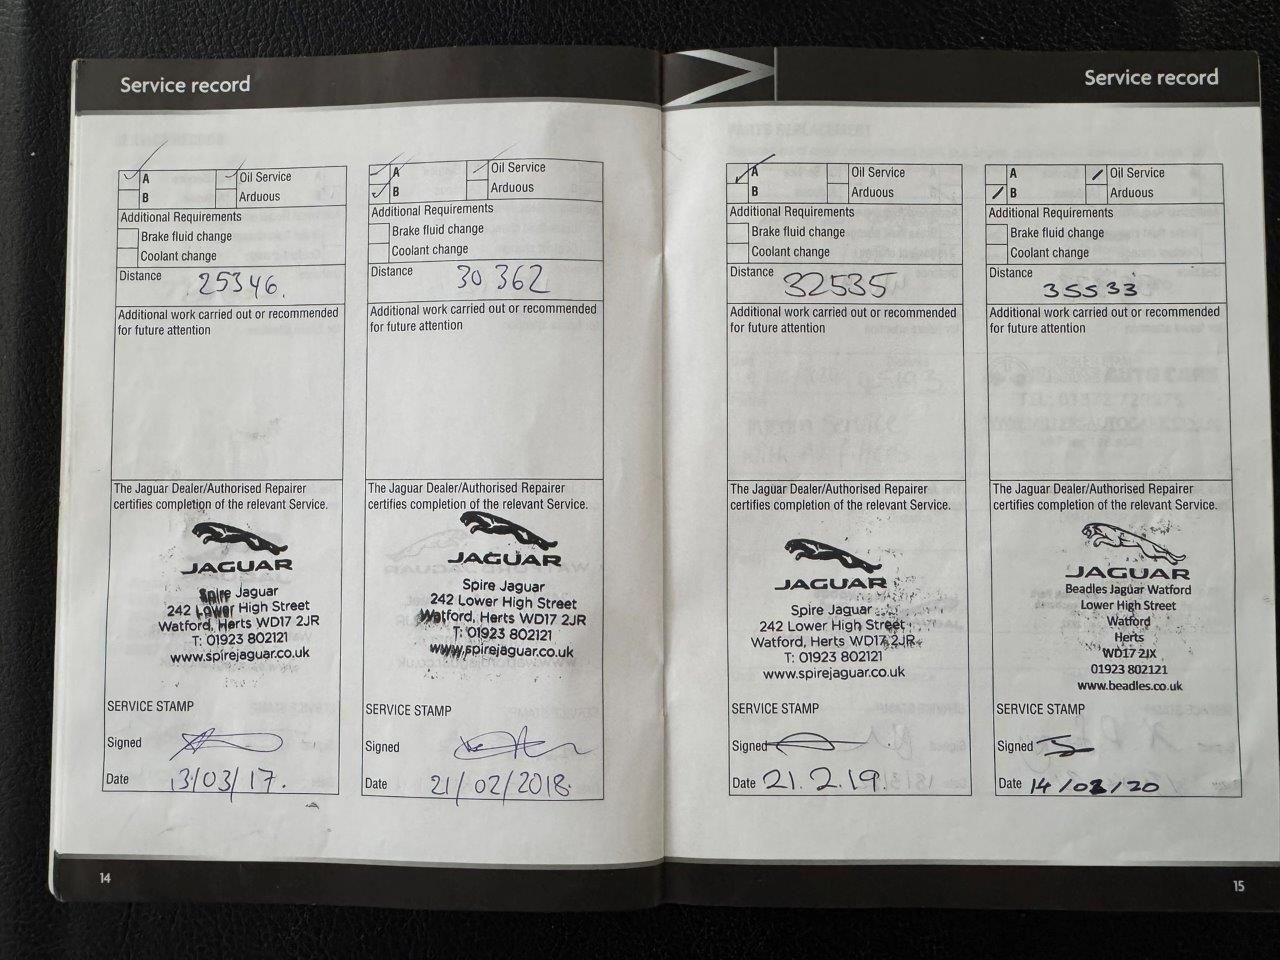 Service record
A
Oil Service
B
Arduous
Additional Requirements
Brake fluid change
Coolant change
Distance 25346.
Additional work carried out or recommended
for future attention
The Jaguar Dealer/Authorised Repairer
certifies completion of the relevant Service.
JAGUAR
Spire Jaguar
242 Lower High Street
Watford, Herts WD17 2JR
T: 01923 802121
www.spirejaguar.co.uk
SERVICE STAMP
Signed
Date 13/03/17.
A
Oil Service
B
Arduous
Additional Requirements
Brake fluid change
Coolant change
Distance 30 362
Additional work carried out or recommended
for future attention
The Jaguar Dealer/Authorised Repairer
certifies completion of the relevant Service.
JAGUAR
Spire Jaguar
242 Lower High Street
Watford, Herts WD17 2JR
T: 01923 802121
www.spirejaguar.co.uk
SERVICE STAMP
Signed
Date 21/02/2018
14
Service record
A
Oil Service
B
Arduous
Additional Requirements
Brake fluid change
Coolant change
Distance 32535
Additional work carried out or recommended
for future attention
The Jaguar Dealer/Authorised Repairer
certifies completion of the relevant Service.
JAGUAR
Spire Jaguar
242 Lower High Street
Watford, Herts WD17 2JR
T: 01923 802121
www.spirejaguar.co.uk
SERVICE STAMP
Signed
Date 21.2.19.
A
Oil Service
B
Arduous
Additional Requirements
Brake fluid change
Coolant change
Distance 35533
Additional work carried out or recommended
for future attention
The Jaguar Dealer/Authorised Repairer
certifies completion of the relevant Service.
JAGUAR
Beadles Jaguar Watford
Lower High Street
Watford
Herts
WD17 2JX
01923 802121
www.beadles.co.uk
SERVICE STAMP
Signed
Date 14/02/20
15